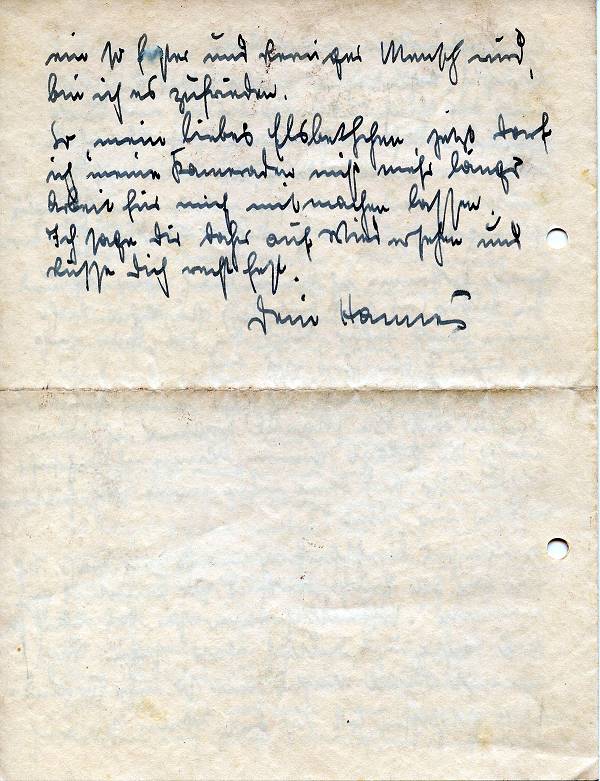 ein so fester und kerniger Mensch wird,
bin ich es zufrieden.
So, mein liebes Elsbethchen, jetzt darf
ich meine Kameraden nicht mehr länger
Arbeit für mich mitmachen lassen.
Ich sage Dir daher auf Wiedersehen und
küsse Dich recht fest.
Dein Hannes